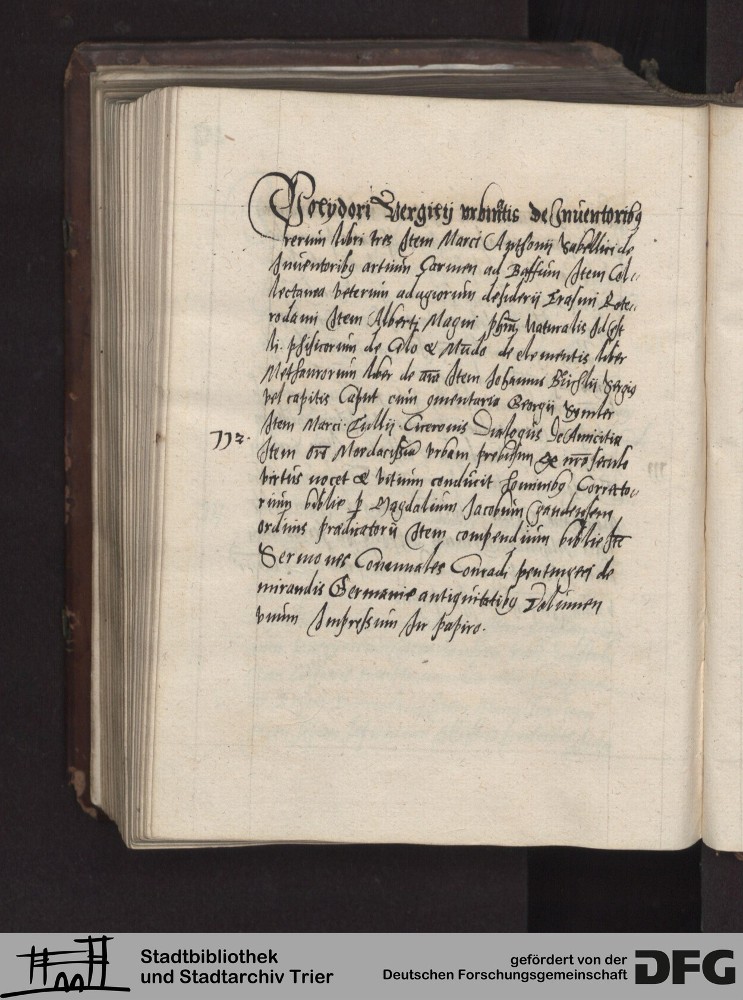 Polydori Vergilij urbinatis de Inuentoribꝫ
rerum libri tres Item Marci Anthonij Sabellici de
Inuentoribꝫ artium Carmen ad Baffum Item Col-
lectanea veterum adagiorum desiderij Erasmi Rote-
rodami Item Alberti Magni naturalis
phisicorum de Celo & Mūdo de elementis liber
Methaurorum liber de aīa Item Johannis Sergij
vel capitis Caput cum Georgij Symler
Item Marci Tullij Ciceronis Dialogus De Amicitia
112.
Item Mordacissima urbani seculo
virtus nocet & vitium conducit hominibꝫ Correcto-
rium biblie p Magdalium Jacobum Gaudensem
ordinis predicatorū Item compendium biblie Itē
Sermones Conuiuales Conradi peutingeri de
mirandis Germanie antiquitatibꝫ Volumen
vnum Impressum In papiro.
Stadtbibliothek
und Stadtarchiv Trier
gefördert von der
Deutschen Forschungsgemeinschaft
DFG